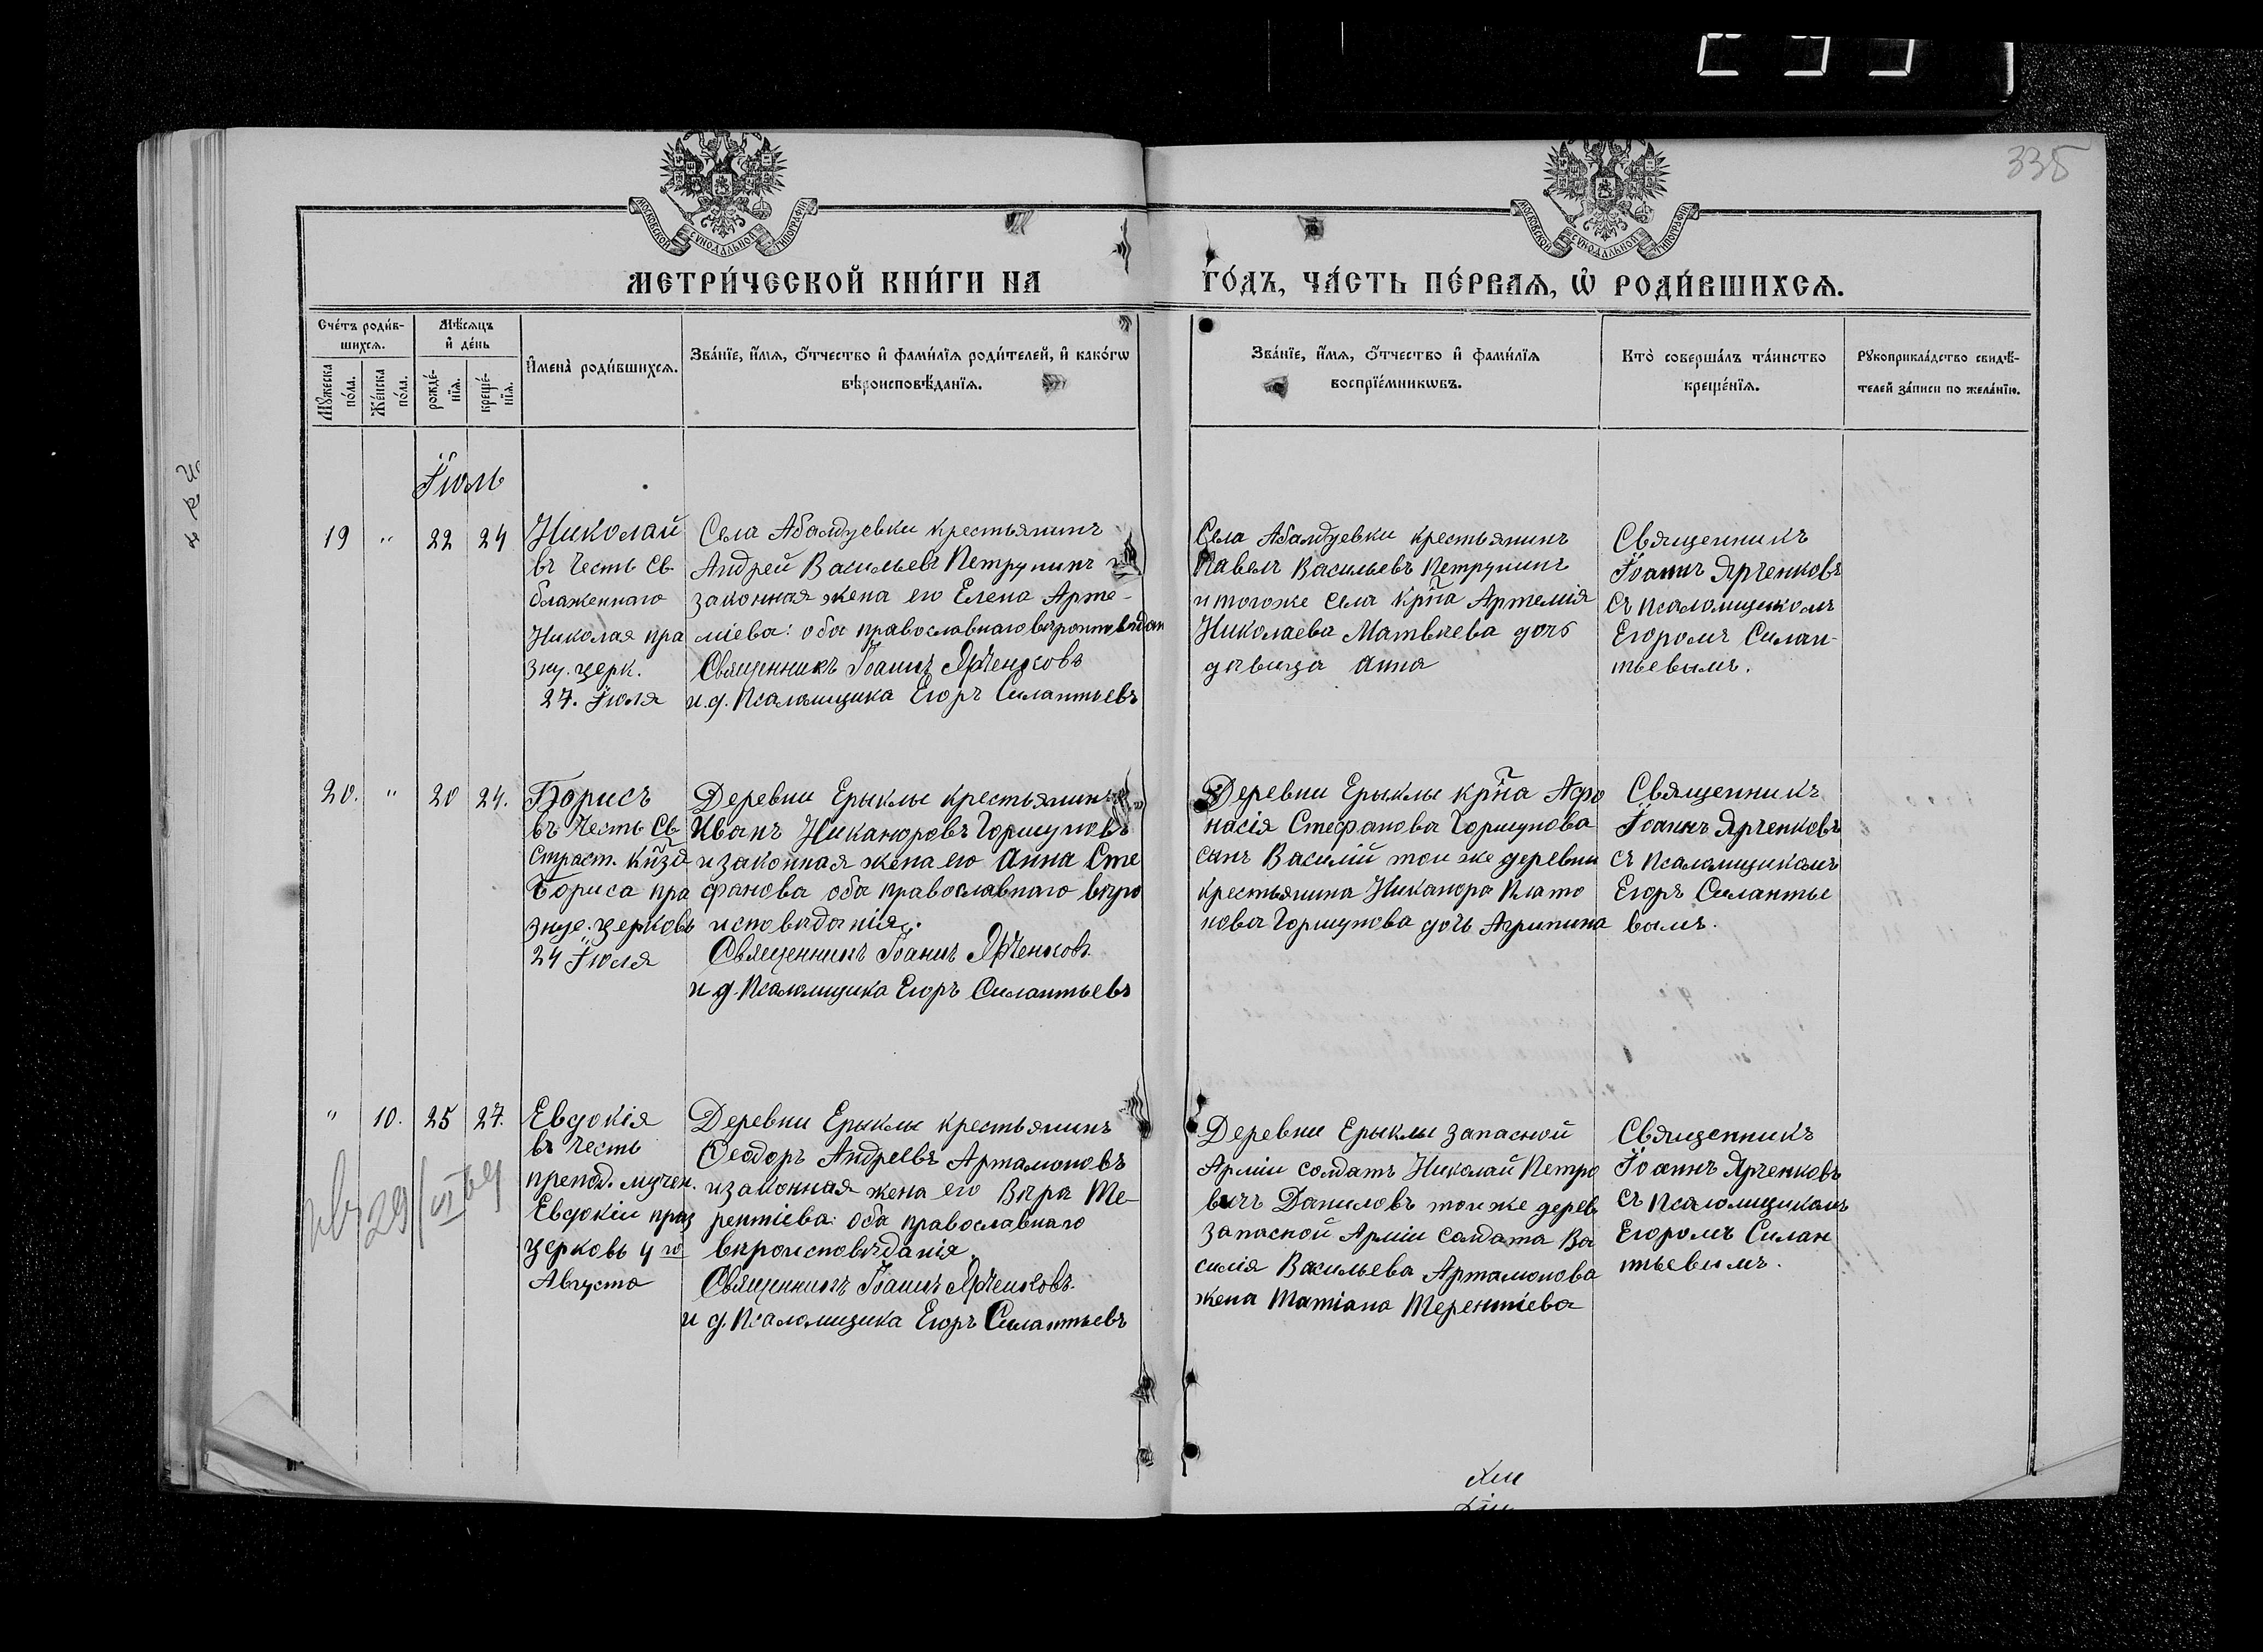 335
МОСКОВСКОЙ СУНОДАЛЬНОЙ ТИПОГРАФІИ
МОСКОВСКОЙ СУНОДАЛЬНОЙ ТИПОГРАФІИ
МЕТРИ́ЧЕСКОЙ КНИ́ГИ НА
ГО́ДЪ, ЧА́СТЬ ПЕ́РВАѦ, Ѡ҆ РОДИ́ВШИХСѦ.
Сче́тъ роди́в-
шихсѧ.
Мѣ́сѧцъ
и҆ де́нь
Мꙋ́жеска
по́ла.
Же́нска
по́ла.
рожде́-
нїѧ.
креще́-
нїѧ.
И҆мена̀ роди́вшихсѧ.
Зва́нїе, и҆́мѧ, ѻ҆́тчество и҆ фами́лїѧ роди́телей, и҆ како́гѡ
вѣроисповѣ́данїѧ.
Зва́нїе, и҆́мѧ, ѻ҆́тчество и҆ фами́лїѧ
воспрїе́мникѡвъ.
Кто̀ соверша́лъ та́инство
креще́нїѧ.
Рꙋкоприкла́дство свидѣ́-
телей за́писи по жела́нїю.
Іюль
19 " 22 24
Николай
въ честь Св
блаженнаго
Николая пра
зну. церк.
27. Іюля
Села Абалдуевки крестьянинъ
Андрей Васильевъ Петрунинъ и
законная жена его Елена Арте-
міева: оба православнаго вѣроисповѣдан
Священникъ Іоаннъ Ярченковъ
и.д. Псаломщика Егоръ Силантьевъ
Села Абалдуевки крестьянинъ
Павелъ Васильевъ Петрунинъ
и тогоже села кр̃на Артемія
Николаева Матвѣева дочь
дѣвица Анна
Священникъ
Іоаннъ Ярченковъ
съ Псаломщикомъ
Егоромъ Силан-
тьевымъ.
20. " 20 24.
Борисъ
въ честь Св
Страст. кн̃зя
Бориса пра
знуе. церковь
24 Іюля
Деревни Ерыклы крестьянинъ
Иванъ Никаноровъ Горшуновъ
и законная жена его Анна Сте
фанова оба православнаго вѣро
исповѣданія.
Священникъ Іоаннъ Ярченковъ.
и д. Псаломщика Егоръ Силантьевъ
Деревни Ерыклы кр̃на Афо
насія Стефанова Горшунова
сынъ Василій тои же деревни
крестьянина Никанора Плато
нова Горшунова дочь Агрипина
Священникъ
Іоаннъ Ярченковъ
съ Псаломщикомъ
Егоръ Силантье
вымъ.
" 10. 25 27.
Евдокія
въ честь
препод. мучен.
Евдокіи праз
церковь 4 го
Августа
Деревни Ерыклы крестьянинъ
Ѳеодоръ Андреевъ Артамоновъ
и законная жена его Вѣра Те-
рентіева: оба православнаго
вѣроисповѣданія.
Священникъ Іоаннъ Ярченковъ.
и д. Псаломщика Егоръ Силантьевъ
Деревни Ерыклы запасной
Арміи солдатъ Николай Петро
вичъ Даниловъ тои же дерев
запасной Арміи солдата Ва
силія Васильева Артамонова
жена Татіана Терентіева
Священникъ
Іоаннъ Ярченковъ
съ Псаломщикомъ
Егоромъ Силан
тьевымъ.